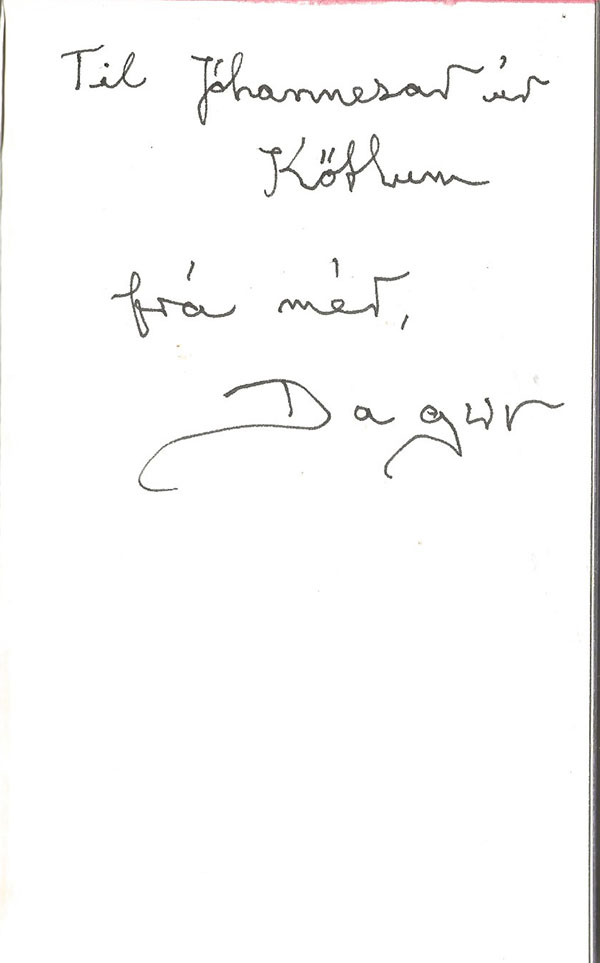 Til Jóhannesar úr
Kötlum
frá mér,
Dagur